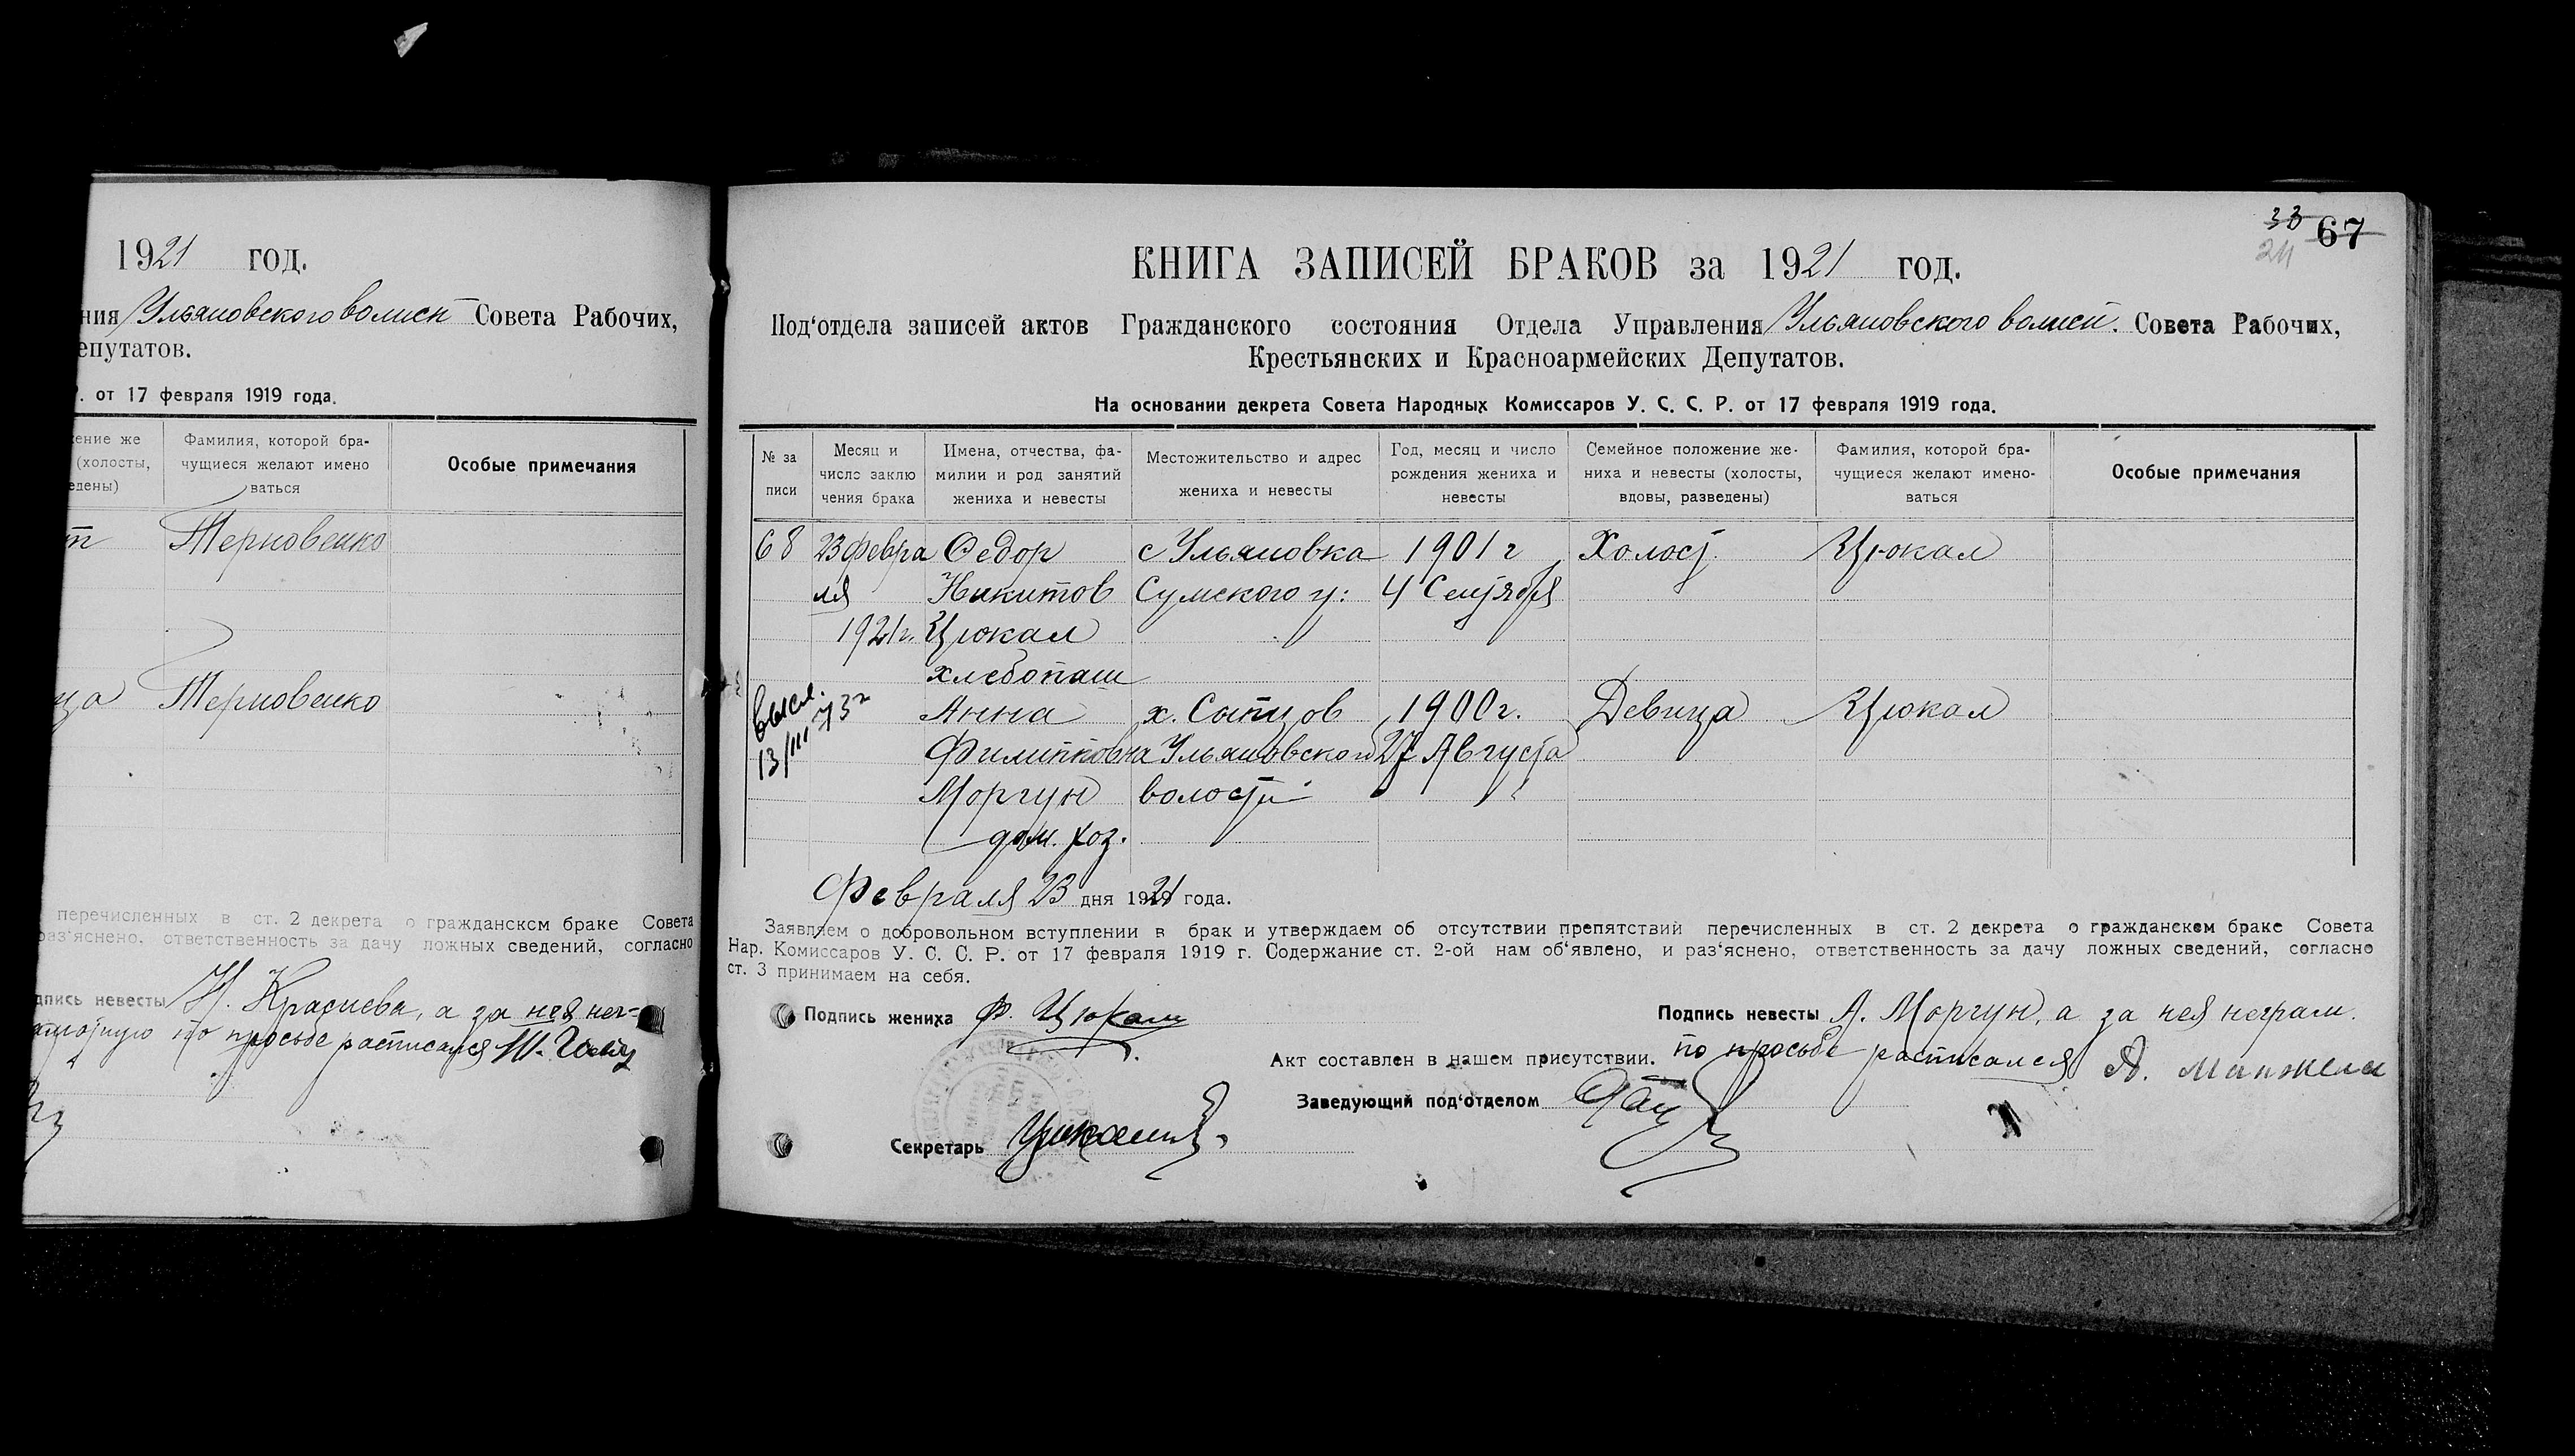 1921 год.
ния Ульяновского волисп Совета Рабочих,
епутатов.
от 17 февраля 1919 года.
ение же
(холосты,
едены)
Фамилия, которой бра-
чущиеся желают имено
ваться
Особые примечания
т Терновенко
ца Терновенко
перечисленных в ст. 2 декрета о гражданском браке Совета
раз‘яснено, ответственность за дачу ложных сведений, согласно
дпись невесты Н. Краснева, а за нея нег-
амотную по просьбе расписался
33 67
24
КНИГА ЗАПИСЕЙ БРАКОВ за 1921 год.
Под‘отдела записей актов Гражданского состояния Отдела Управления Ульяновского волисп. Совета Рабочих,
Крестьянских и Красноармейских Депутатов.
На основании декрета Совета Народных Комиссаров У. С. С. Р. от 17 февраля 1919 года.
№ за
писи
Месяц и
число заклю
чения брака
Имена, отчества, фа-
милии и род занятий
жениха и невесты
Местожительство и адрес
жениха и невесты
Год, месяц и число
рождения жениха и
невесты
Семейное положение же-
ниха и невесты (холосты,
вдовы, разведены)
Фамилия, которой бра-
чущиеся желают имено-
ваться
Особые примечания
68 23 февра Федор с Ульяновка 1901 г Холост Цюкал
ля Никитов Сумского у: 4 Сентября
1921 г. Цюкал
хлебопаш
высл. 13/III 73 г
Анна х. Сыпцов 1900 г. Девица Цюкал
Филипповна Ульяновской 27 Августа
Моргун волости
дом. хоз.
Февраля 23 дня 1921 года.
Заявляем о добровольном вступлении в брак и утверждаем об отсутствии препятствий перечисленных в ст. 2 декрета о гражданском браке Совета
Нар. Комиссаров У. С. С. Р. от 17 февраля 1919 г. Содержание ст. 2-ой нам об‘явлено, и раз‘яснено, ответственность за дачу ложных сведений, согласно
ст. 3 принимаем на себя.
Подпись жениха Ф. Цюкал
Подпись невесты А. Моргун, а за нея неграм.
по просьбе расписался А.
Акт составлен в нашем присутствии.
Заведующий под‘отделом
Секретарь